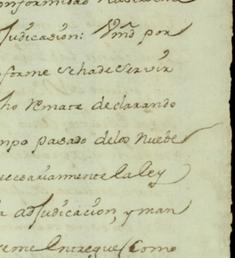 onformidad
Judicasion: Vmd por
forme se ha de servir
ho Remate declarando
mpo pasado delos Nuebe
necesariamente la Ley
adjudicacion, y man
eme Entregue Como